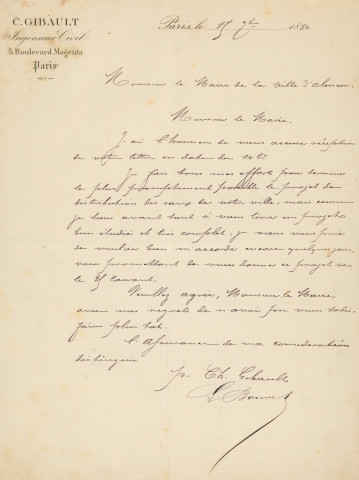 C. GIBAULT
Ingénieur Civil
5, Boulevard Magenta
Paris
Paris, le 15 7bre 1880
Monsieur le Maire de la ville d'Alençon
Monsieur le Maire.
J'ai l'honneur de vous accuser réception
de votre lettre en date du 14 Ct.
Je fais tous mes efforts pour terminer
le plus promptement possible le projet de
distribution des eaux de votre ville, mais comme
je tiens avant tout à vous livrer un projet
bien étudié et très complet, je viens vous prier
de vouloir bien m'accorder encore quelques jours,
vous promettant de vous donner ce projet vers
le 25 courant.
Veuillez agréer, Monsieur le Maire,
avec mes regrets de n'avoir pu vous satis-
faire plus tôt.
l'assurance de ma considération
distinguée
pr. Ch. Gibault